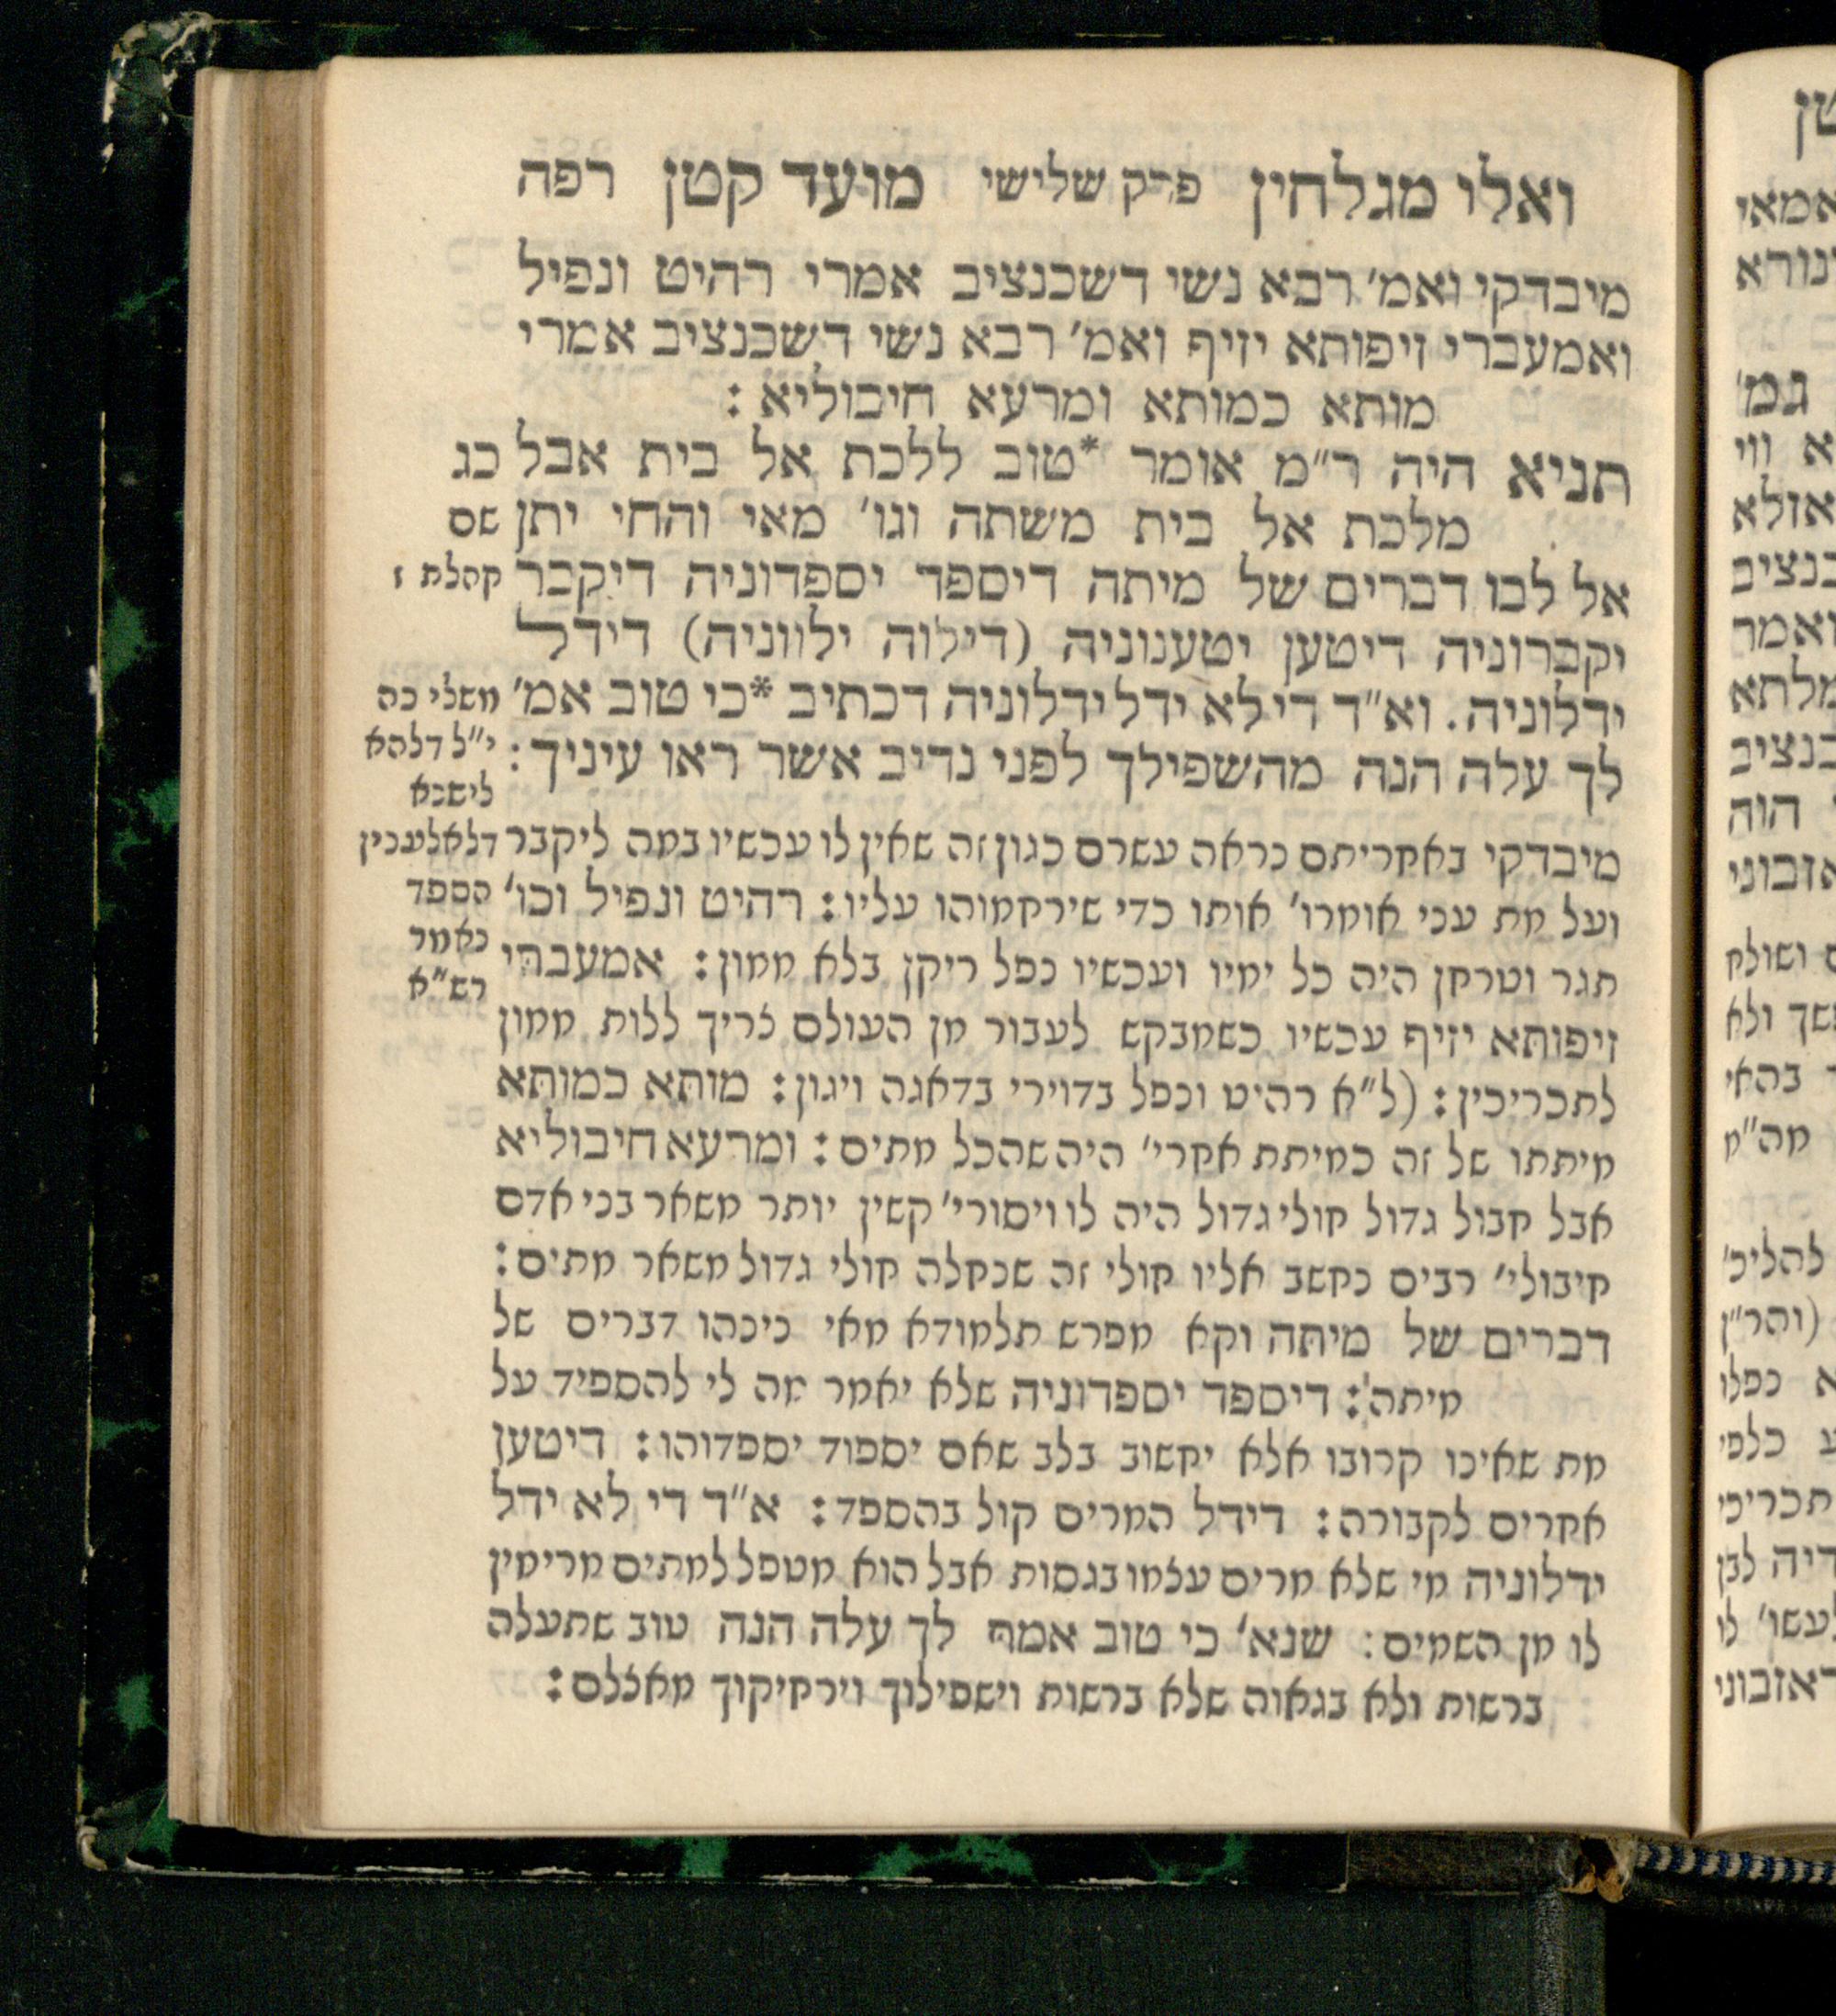 ואלו מגלחין פרק שלישי מועד קטן רפה
מיבדקי ואמ' רבא נשי דשכנציב אמרי רהיט ונפיל
ואמעברי זיפותא יזיף ואמ' רבא נשי דשכנציב אמרי
מותא כמותא ומרעא חיבוליא :
תניא היה ר"מ אומר *טוב ללכת אל בית אבל
מלכת אל בית משתה וגו' מאי והחי יתן
אל לבו דברים של מיתה דיספד יספדוניה דיקבר
יקברוניה דיטען יטענוניה (דילוה ילווניה) דידל
ידלוניה. וא"ד די לא ידל ידלוניה דכתיב *כי טוב אמ'
לך עלה הנה מהשפילך לפני נדיב אשר ראו עיניך :
כג
שם
קהלת ז
משלי כה
י"ל דלהא
לישנא
דלאלענין
הספד
נאמר
רש"א
מיבדקי באחריתם נראה עשרם כגון זה שאין לו עכשיו במה ליקבר
ועל מת עני אומרו' אותו כדי שירחמוהו עליו : רהיט ונפיל וכו'
תגר וטרחן היה כל ימיו ועכשיו נפל ריקן בלא ממון : אמעברי
זיפותא יזיף עכשיו כשמבקש לעבור מן העולם צריך ללות ממון
לתכריכין : (ל"א רהיט ונפל בדוירי בדאגה ויגון : מותא כמותא
מיתתו של זה כמיתת אחרי' היה שהכל מתים : ומרעא חיבוליא
אבל חבול גדול חולי גדול היה לו ויסורי' קשין יותר משאר בני אדם
חיבולי' רבים נחשב אליו חולי זה שנחלה חולי גדול משאר מתים :
דברים של מיתה וקא מפרש תלמודא מאי נינהו דברים של
מיתה : דיספד יספדוניה שלא יאמר מה לי להספיד על
מת שאינו קרובו אלא יחשוב בלב שאם יספוד יספדוהו : דיטען
אחרים לקבורה : דידל המרים קול בהספד : א"ד די לא ידל
ידלוניה מי שלא מרים עצמו בגסות אבל הוא מטפל למתים מרימין
לו מן השמים : שנא' כי טוב אמר לך עלה הנה טוב שתעלה
ברשות ולא בגאוה שלא ברשות וישפילוך וירחיקוך מאצלם :
טן
אמאי
נורא
גמ'
א ווי
אזלא
כנציב
ואמר
מלתא
כנציב
הוה
אזבוני
ושולח
ולא
בהאי
מה"מ
להלינ'
(והר"ן
א נפלו
כלפי
תכריכי
דיה לבן
לו
ראזבוני